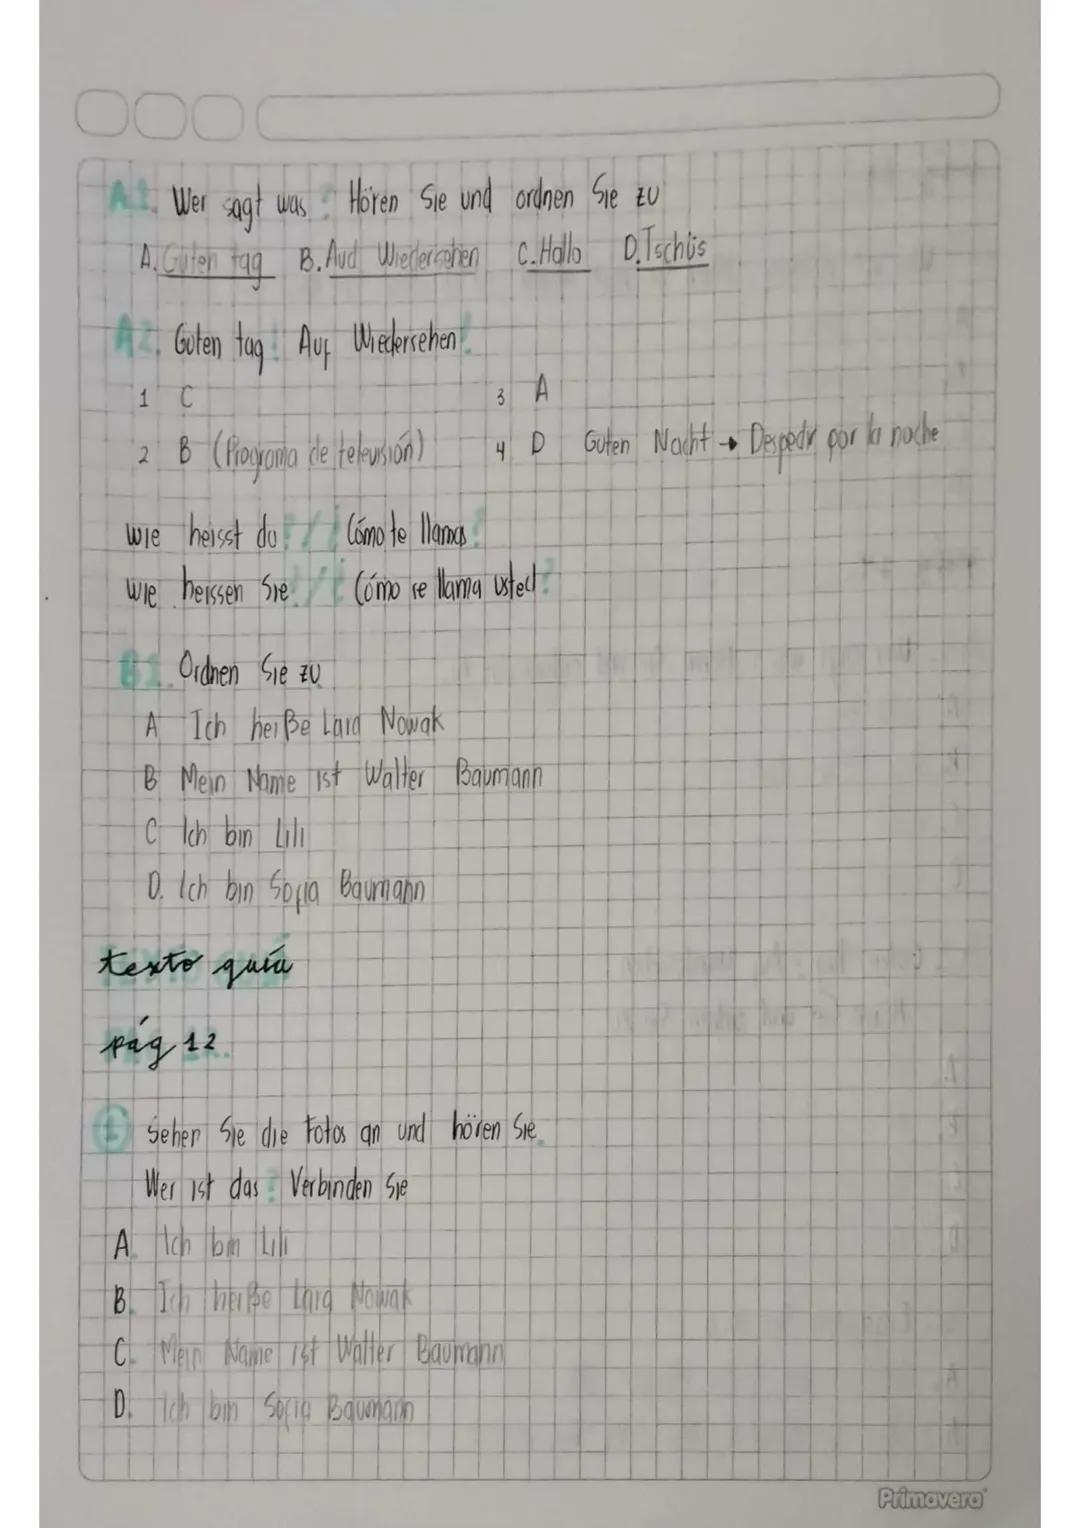 A1. Wer sagt was? Hören Sie und ordnen Sie zu
A. Guten tag B. Aud Wiedersehen C. Hallo D. Tschüs
A2. Guten tag! Auf Wiedersehen!
1 C 3 A
2 B (Programa de televisión) 4 D Guten Nacht → Despedir por la noche
wie heisst du? / ¿Cómo te llamas?
wie heissen Sie? / ¿Cómo se llama usted?
B1. Ordnen Sie zu
A Ich heiße Lara Nowak
B Mein Name ist Walter Baumann
C Ich bin Lili
D. Ich bin Sofia Baumann
texto guía
pág 12.
1 Sehen Sie die Fotos an und hören Sie.
Wer ist das? Verbinden Sie
A. Ich bin Lili
B. Ich heiße Lara Nowak
C. Mein Name ist Walter Baumann
D. Ich bin Sofia Baumann
Primavera